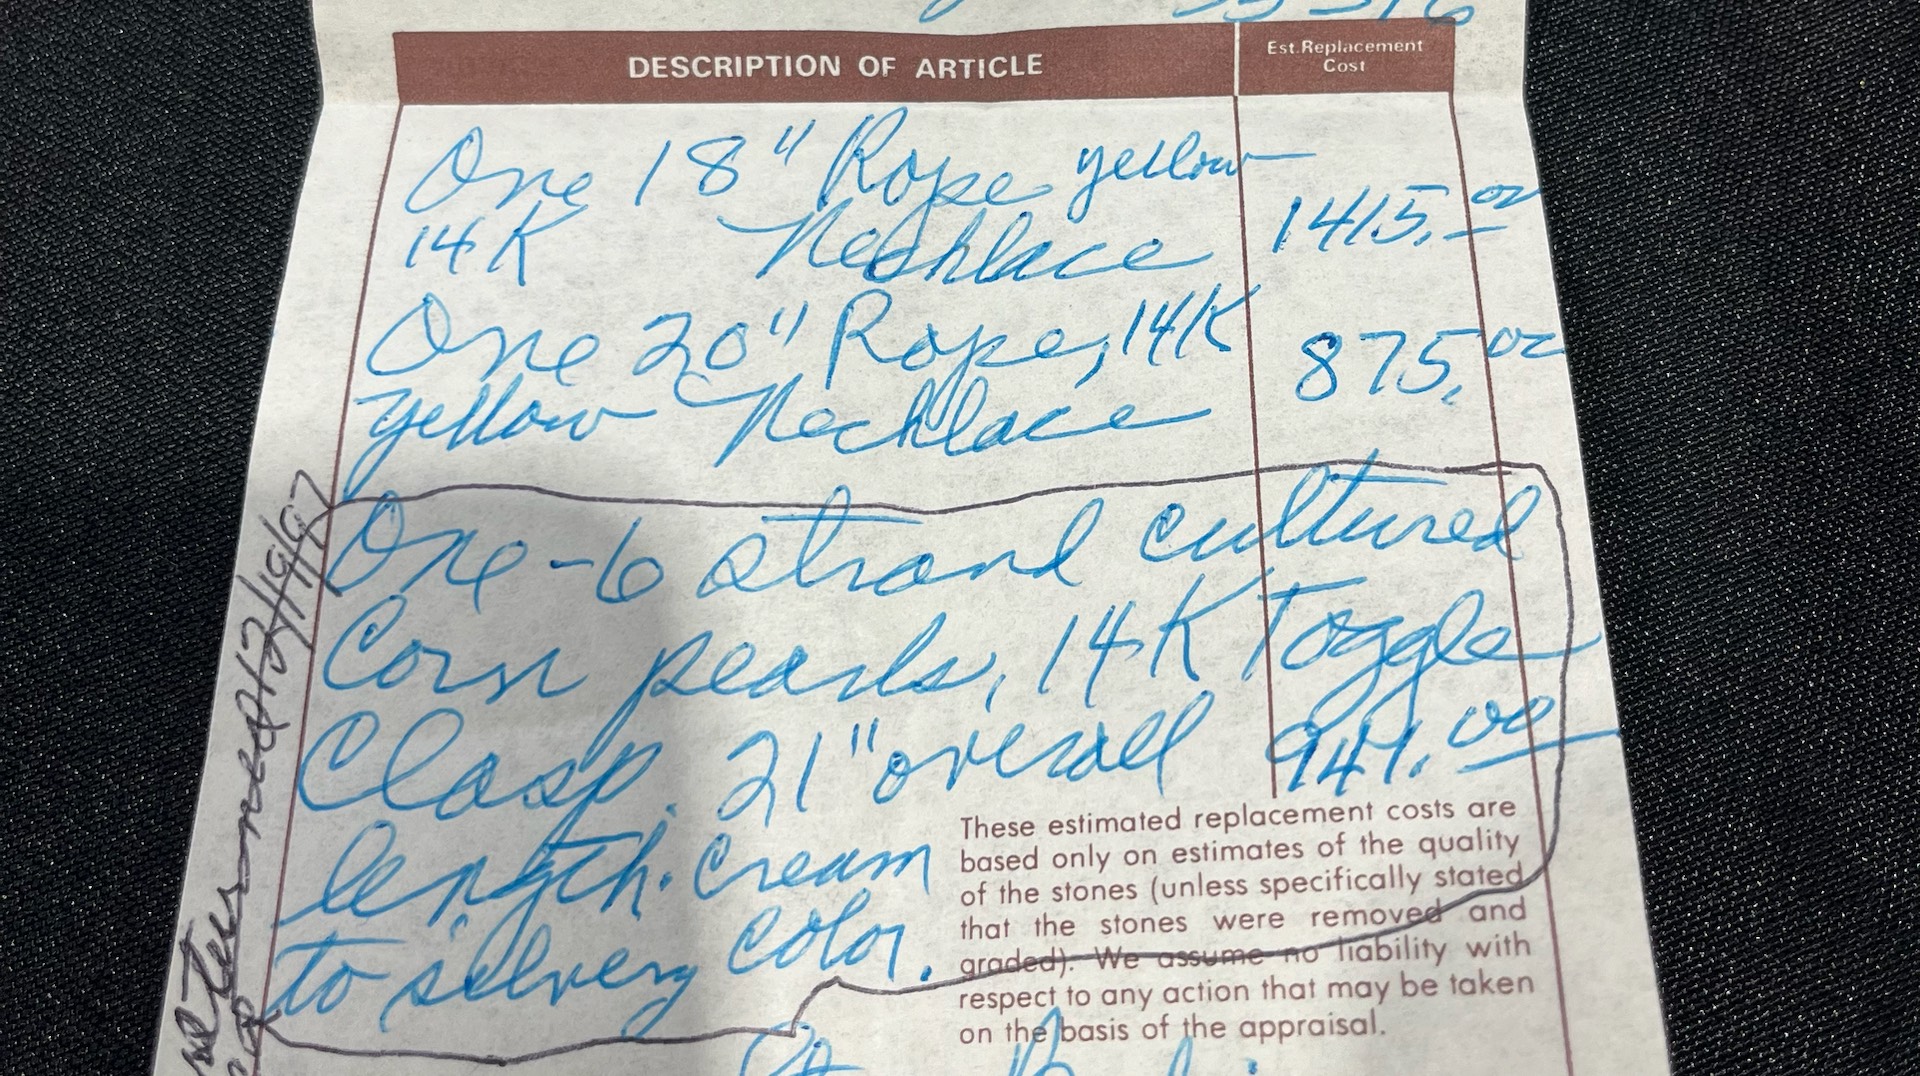 DESCRIPTION OF ARTICLE
Est. Replacement
Cost
One 18" Rope yellow
14K Necklace 1415.00
One 20" Rope, 14K
yellow Necklace 875.00
One - 6 strand cultured
Corn pearls, 14K Toggle
Clasp. 21" overall 941.00
length. Cream
to silvery color.
These estimated replacement costs are
based only on estimates of the quality
of the stones (unless specifically stated
that the stones were removed and
graded). We assume no liability with
respect to any action that may be taken
on the basis of the appraisal.